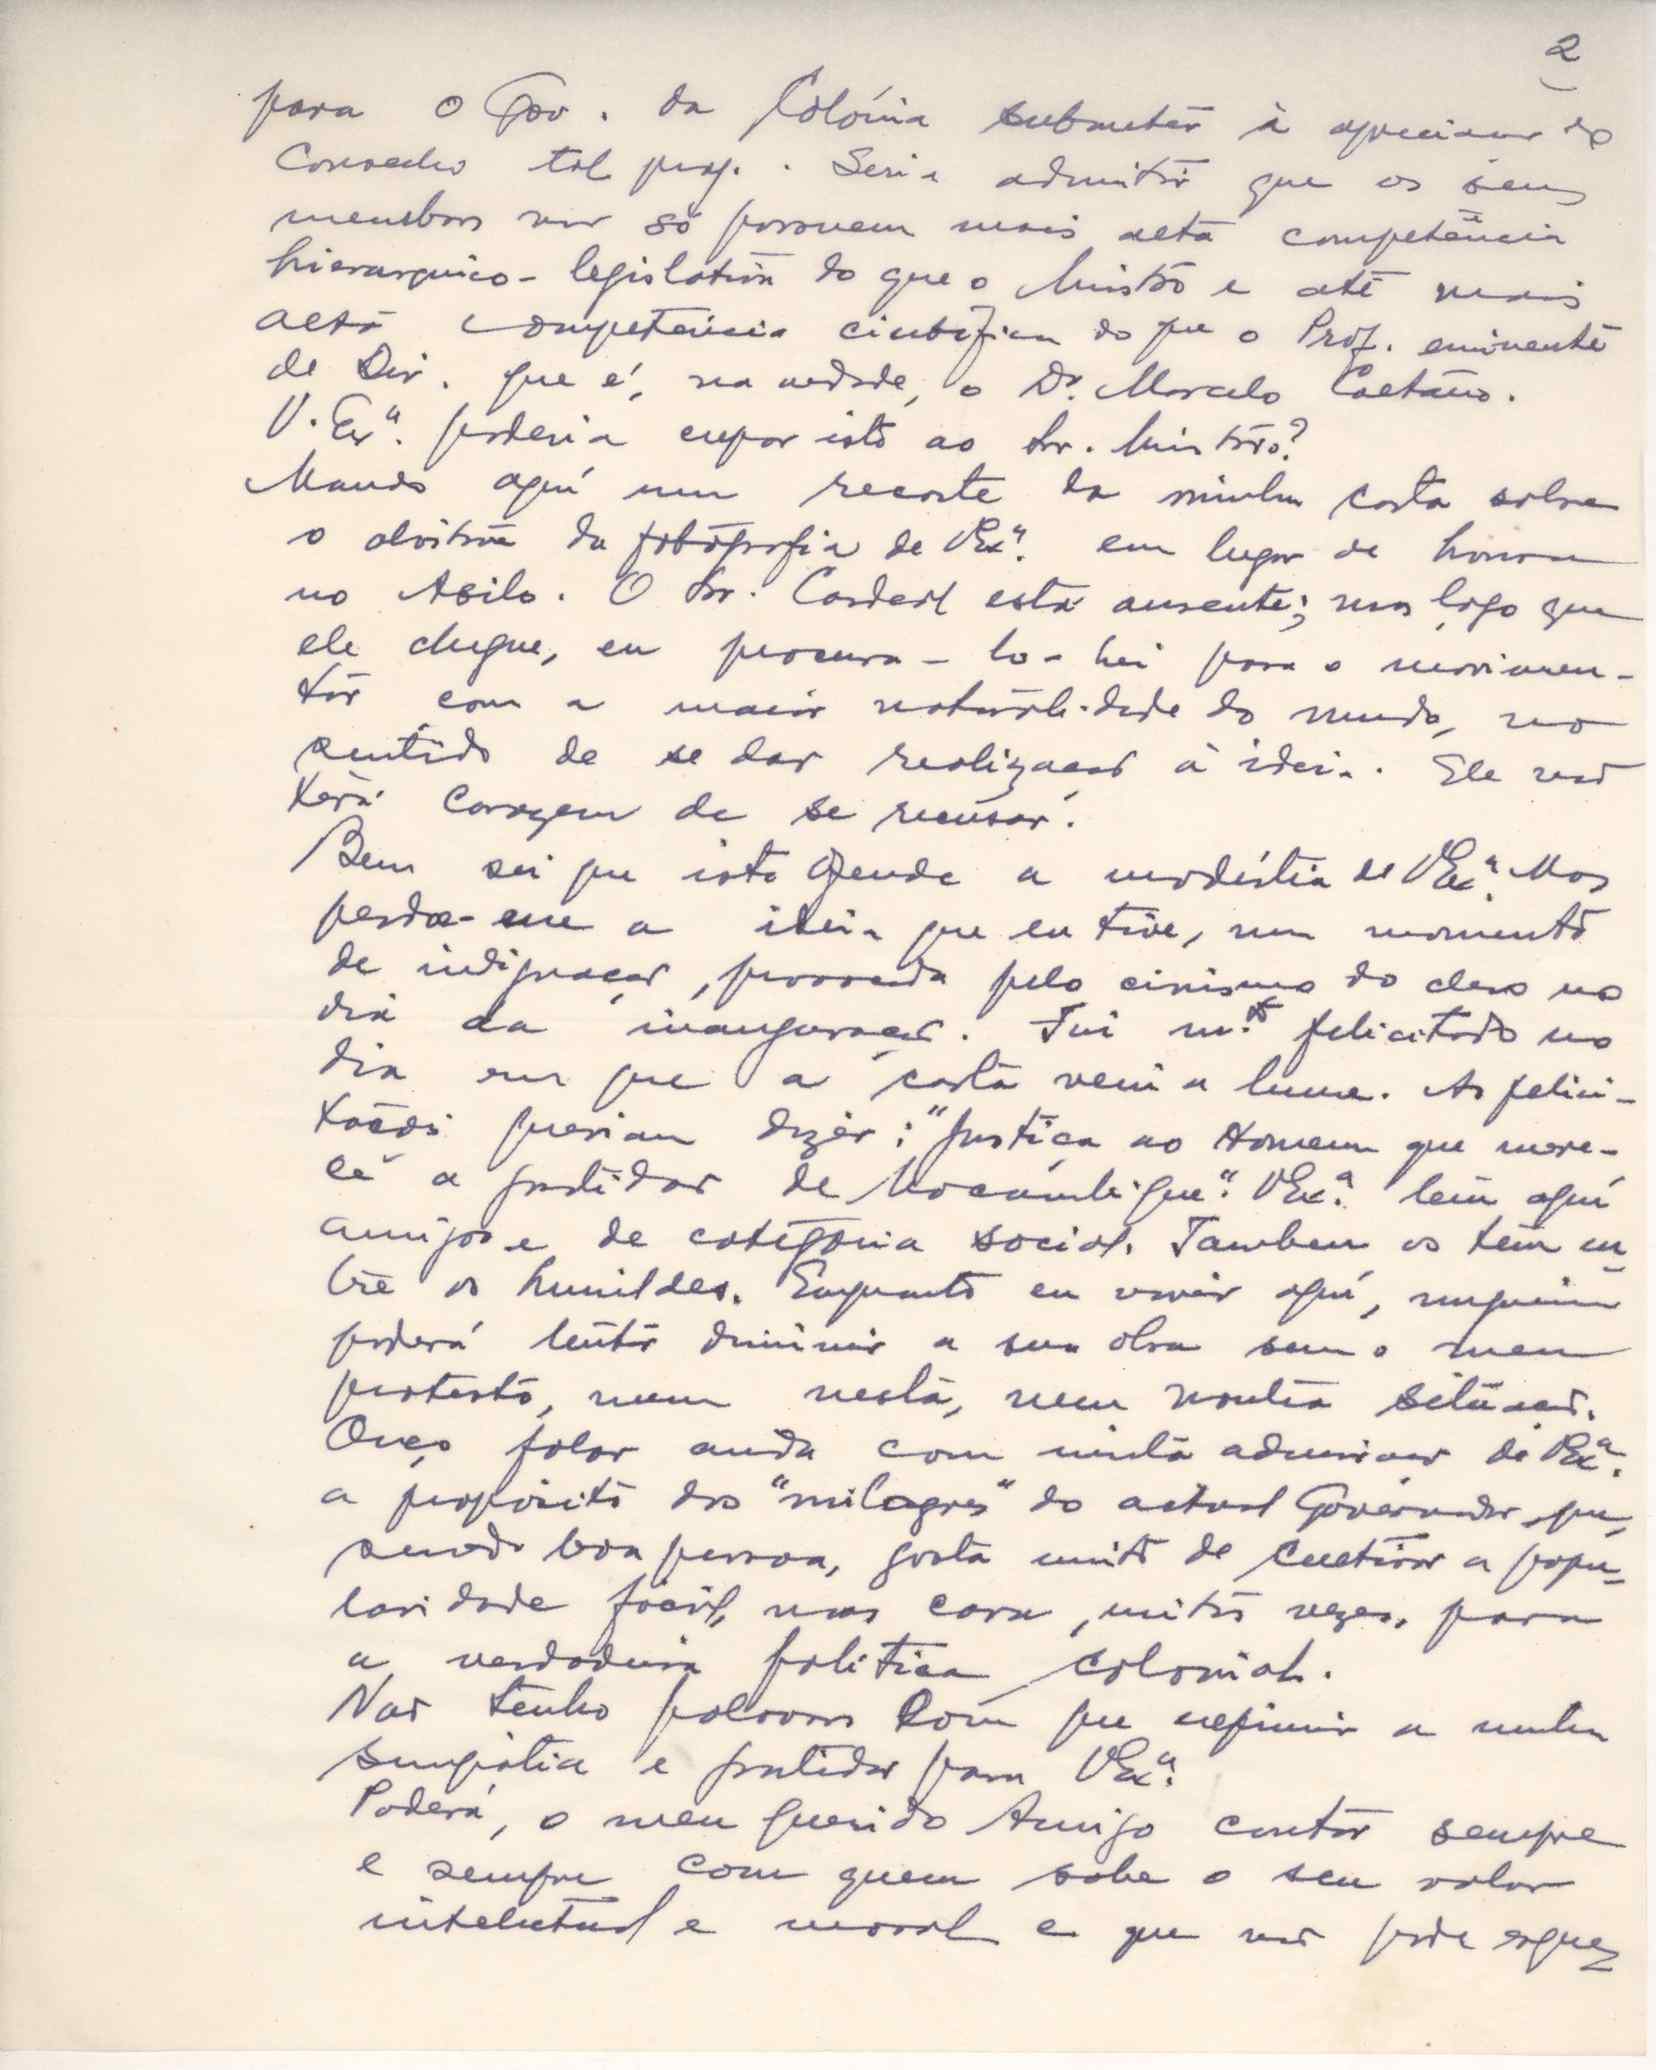 2
para o Gov. da Colónia submeter à apreciação do
Conselho tal proj. Seria admitir que os seus
membros não só possuem mais alta competência
hierarquico-legislativa do que o Ministro e até mais
alta competência científica do que o Prof. eminente
de Dir. que é, na verdade, o Dr. Marcelo Caetano.
V. Exª. poderia expor isto ao Sr. Ministro?
Mando aqui um recorte da minha carta sobre
o alvitre da fotografia de VExª. em lugar de honra
no Asilo. O Sr. Cardeal está ausente; mas logo que
ele chegue, eu procura-lo-hei para o movimen-
tar com a maior naturalidade do mundo, no
sentido de se dar realização à ideia. Ele não
terá coragem de se recusar.
Bem sei que isto ofende a modéstia de VExª. Mas
perdoe-me a ideia que eu tive, num momento
de indignação, provocada pelo cinismo do clero no
dia da inauguração. Fui m.to felicitado no
dia em que a carta veiu a lume. As felici-
tações queriam dizer: "Justiça ao Homem que mere-
ce a gratidão de Moçambique". VExª. tem aqui
amigos e de categoria social. Tambem os tem en-
tre os humildes. Enquanto eu viver aqui, ninguem
poderá tentar diminuir a sua obra sem o meu
protesto, nem nesta, nem noutra situação.
Ouço falar ainda com muita admiração de VExª.
a propósito dos "milagres" do actual Governador que,
sendo boa pessoa, gosta muito de cultivar a popu-
laridade fácil, mas cara, muitas vezes, para
a verdadeira politica colonial.
Não tenho palavras com que exprimir a minha
simpatia e gratidão para VExª.
Poderá, o meu querido Amigo contar sempre
e sempre com quem sabe o seu valor
intelectual e moral e que não pode esque-